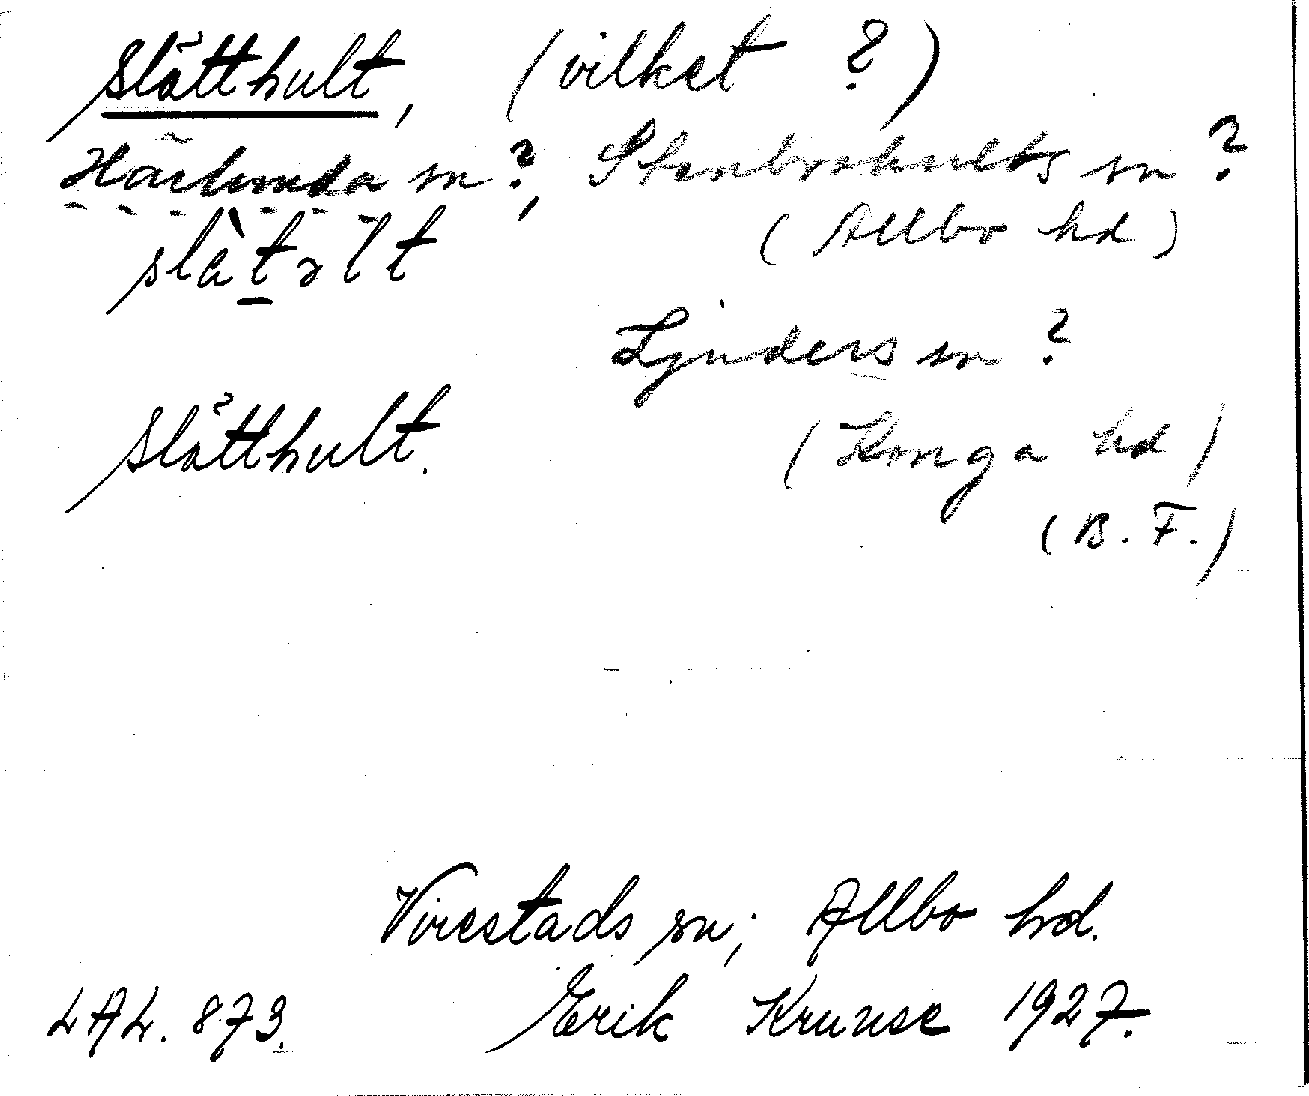 Slätthult, (vilket ?)
Härlunda sn?, Stenbrohults sn?
slàtǝlt (Allbo hd)
Ljuders sn?
Slätthult. (Konga hd)
(B. F.)
Virestads sn; Allbo hd.
LAL. 873. Erik Kruuse 1927.